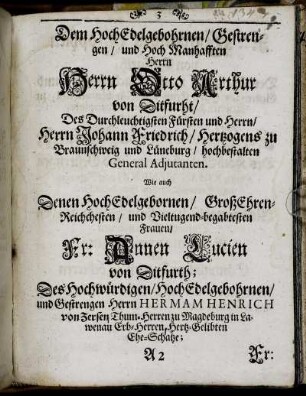 3
Dem HochEdelgebohrnen/ Gestren-
gen/ und Hoch Manhafften
Herrn
Herrn Otto Arthur
von Ditfurht/
Des Durchleuchtigsten Fürsten und Herrn/
Herrn Johann Friedrich/ Hertzogens zu
Braunschweig und Lüneburg/ hochbestalten
General Adjutanten.
Wie auch
Denen HochEdelgebornen/ GroßEhren-
Reichchesten/ und Vieltugend-begabtesten
Frauen/
Fr: Annen Lucien
von Ditfurth:
Des Hochwürdigen/ HochEdelgebohrnen/
und Gestrengen Herrn HERMAM HENRICH
von Zersen Thum-Herren zu Magdeburg in La-
wenau Erb-Herren, Hertz-Gelibten
Ehe-Schatze;
A2 Fr: